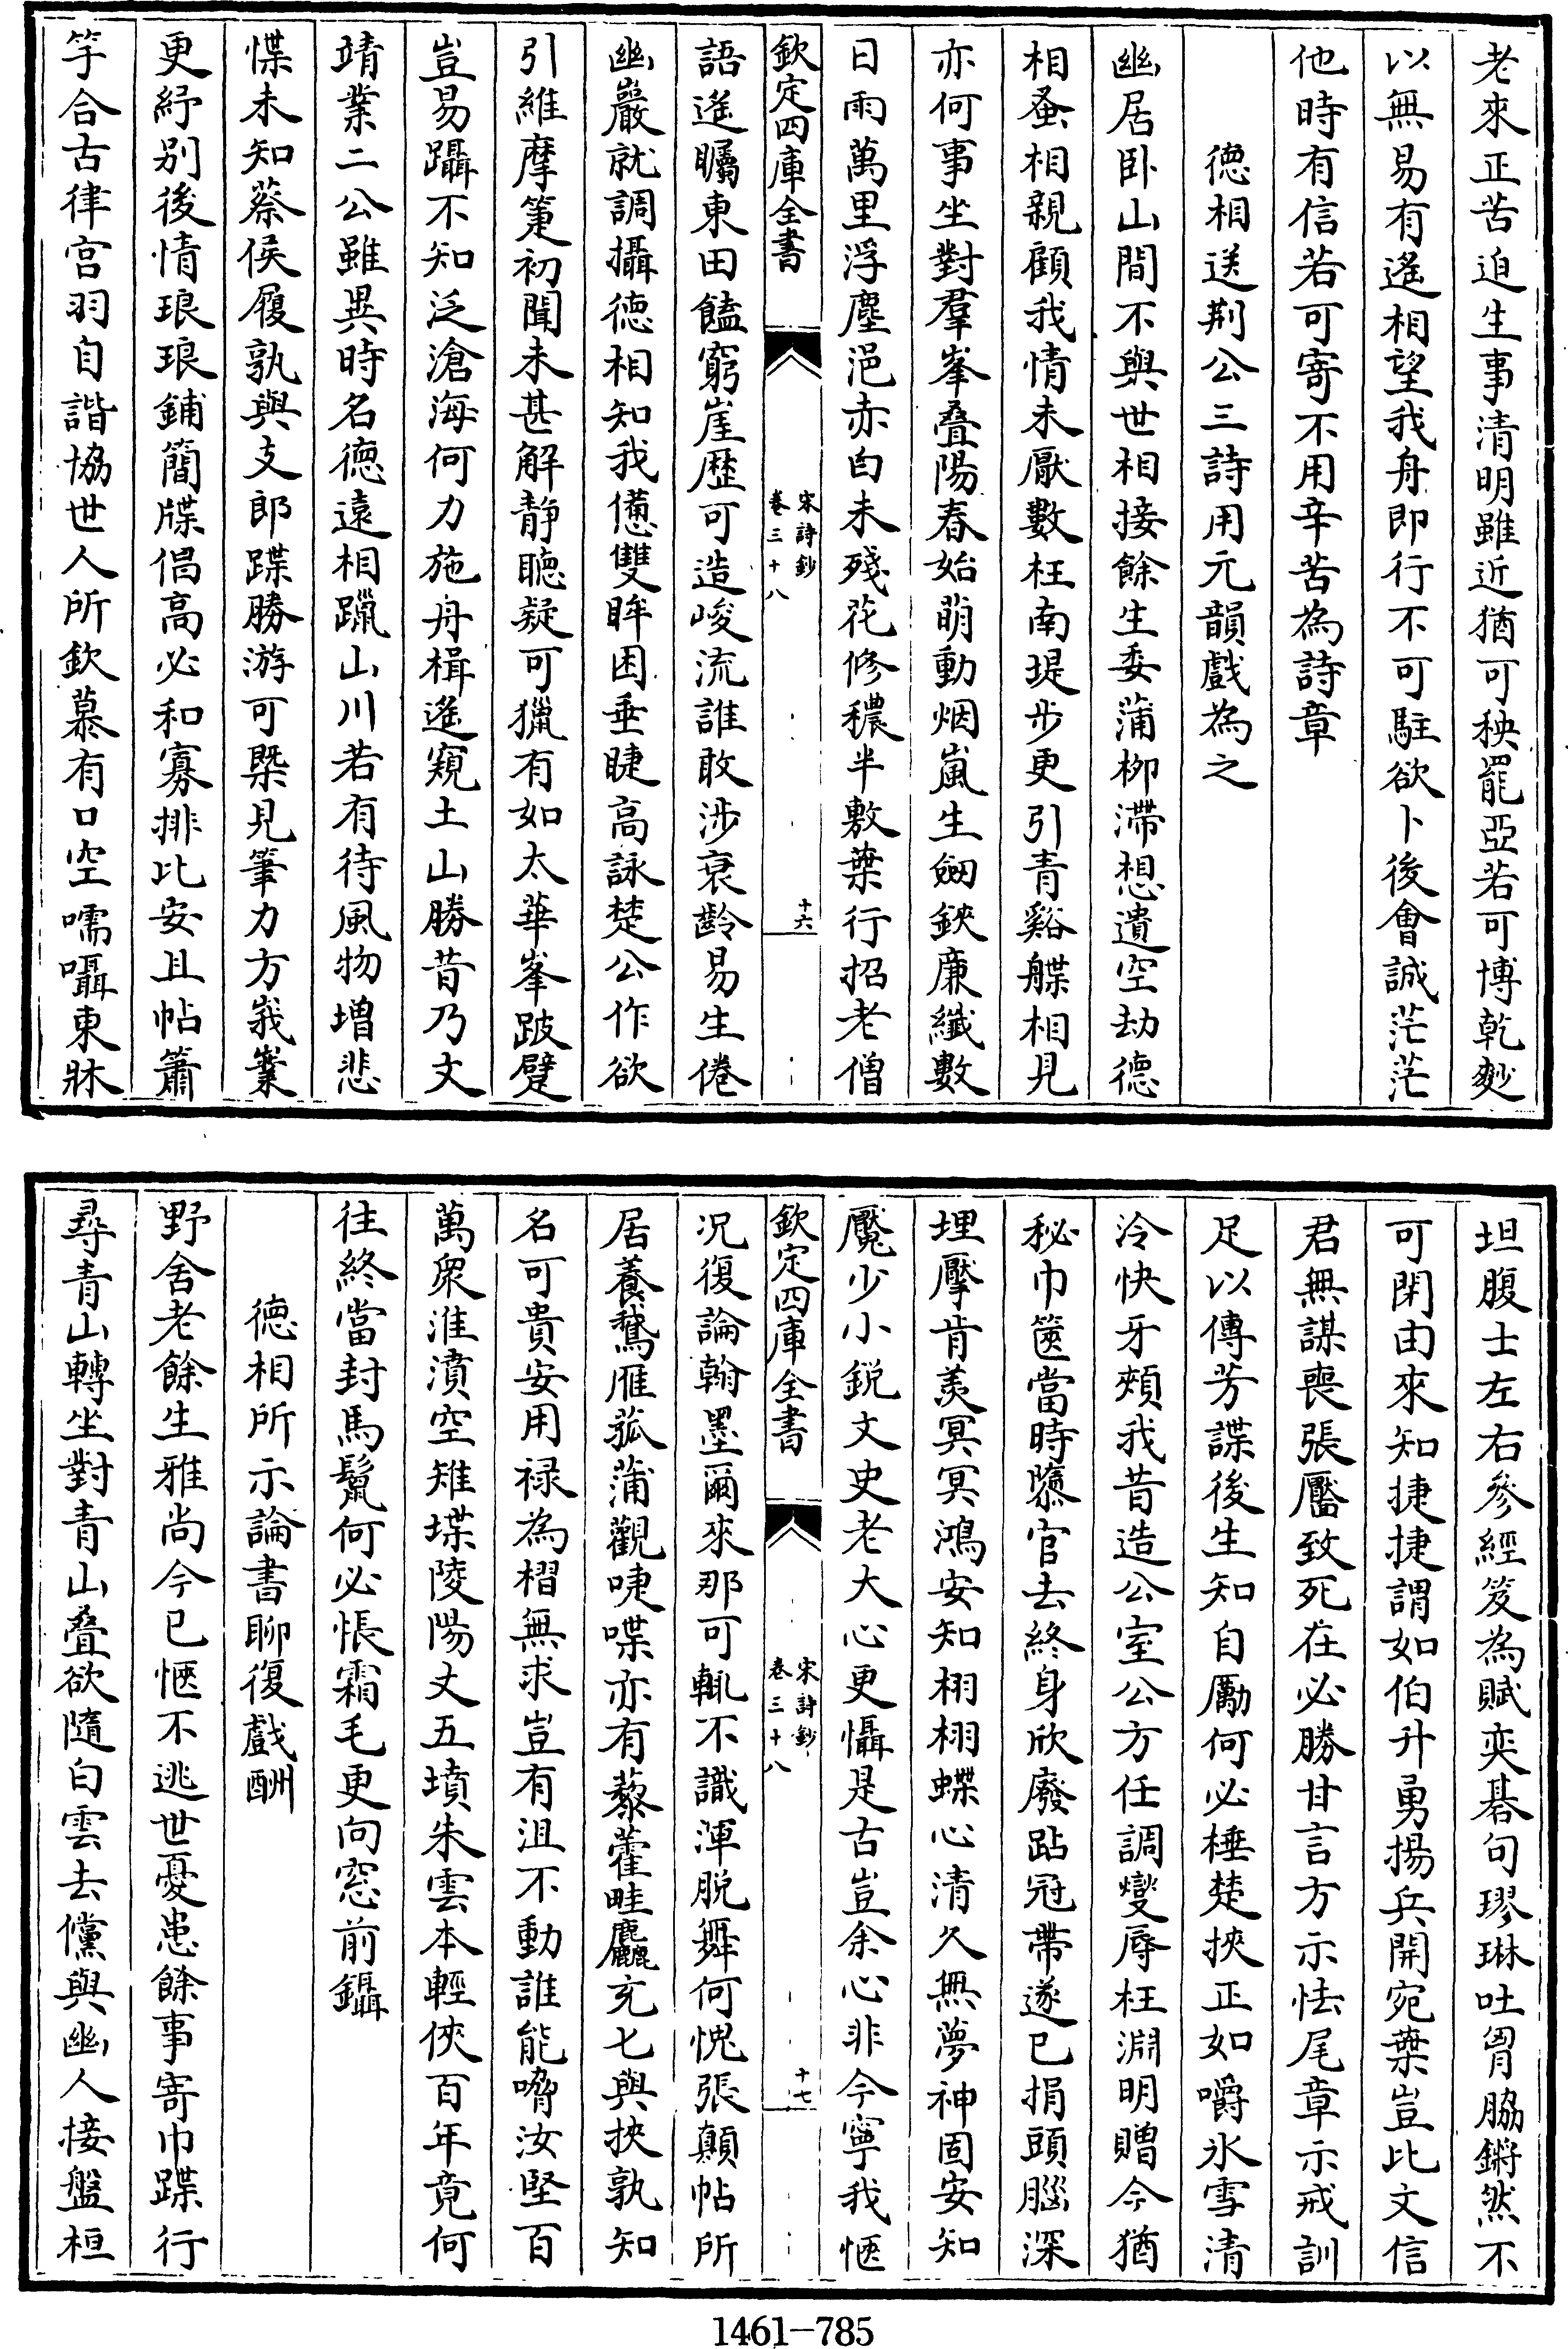 老來正苦迫生事清明雖近猶可秧罷亞若可博乾麨
以無易有遙相望我舟即行不可駐欲卜後會誠茫茫
他時有信若可寄不用辛苦為詩章
德相送荆公三詩用元韻戲為之
幽居卧山間不與世相接餘生委蒲柳滯想遺空劫德
相蚤相親顧我情未厭數枉南堤步更引青谿艓相見
亦何事坐對羣峯叠陽春始萌動烟嵐生劒鋏廉纖數
日雨萬里浮塵浥赤白未殘花修穠半敷葉行招老僧
欽定四庫全書
宋詩鈔
卷三十八
十六
語遙矚東田饁窮崖歴可造峻流誰敢涉衰齡易生倦
幽巖就調攝德相知我憊雙眸困垂睫高詠楚公作欲
引維摩箑初聞未甚解静聽疑可獵有如太華峯跛躄
豈易躡不知泛滄海何力施舟楫遙窺土山勝昔乃文
靖業二公雖異時名德遠相躐山川若有待風物增悲
惵未知蔡侯履孰與支郎蹀勝游可槩見筆力方峩嶪
更紓别後情琅琅鋪簡牒倡高必和寡排比安且帖簫
竽合古律宫羽自諧協世人所欽慕有口空嚅囁東牀
坦腹士左右參經笈為賦奕碁句璆琳吐胷脇鏘然不
可閉由來知捷捷謂如伯升勇揚兵開宛葉豈比文信
君無謀喪張黶致死在必勝甘言方示怯尾章示戒訓
足以傳芳諜後生知自勵何必棰楚挾正如嚼氷雪清
泠快牙頰我昔造公室公方任調燮辱枉淵明贈今猶
秘巾篋當時隳官去終身欣廢跕冠帶遂已捐頭腦深
埋擪肯羡冥冥鴻安知栩栩蝶心清久無夢神固安知
魘少小鋭文史老大心更懾是古豈余心非今寧我愜
欽定四庫全書
宋詩鈔
卷三十八
十七
况復論翰墨爾來那可輒不識渾脱舞何愧張顛帖所
居養鵞雁菰蒲觀唼喋亦有藜藿畦麤充七與挾孰知
名可貴安用禄為摺無求豈有沮不動誰能脅汝堅百
萬衆淮濆空雉堞陵陽丈五墳朱雲本輕俠百年竟何
往終當封馬鬛何必悵霜毛更向窓前鑷
德相所示論書聊復戲酬
野舍老餘生雅尚今已愜不逃世憂患餘事寄巾蹀行
尋青山轉坐對青山叠欲隨白雲去儻與幽人接盤桓
1461—785